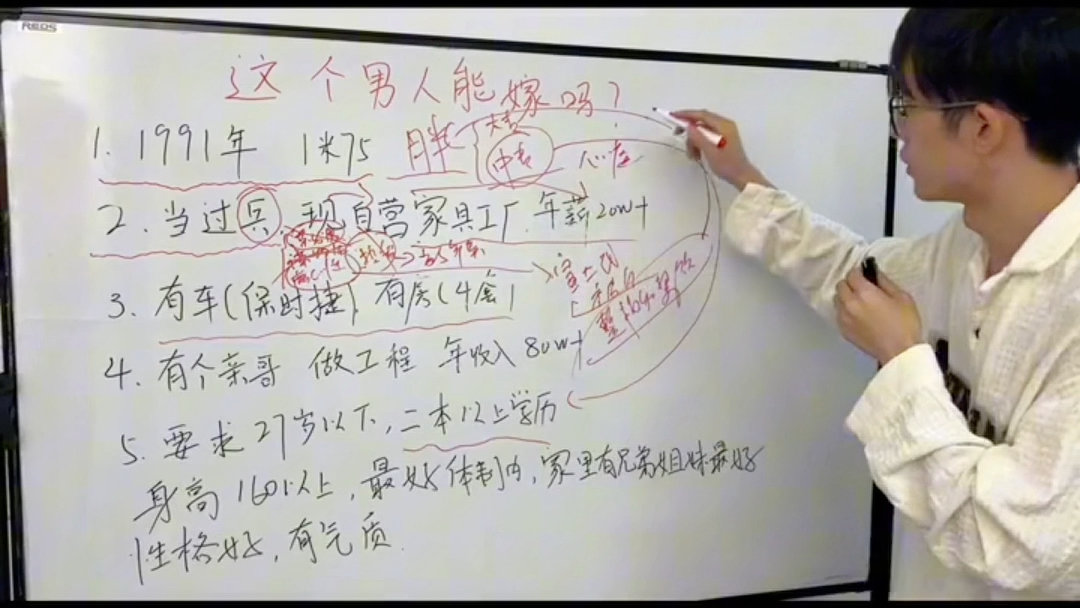 REDS
这个男人能嫁吗?
1. 1991年 1米75 胖
中专 心虚
2. 当过兵,现自营家具工厂.年薪20w+
3. 有车(保时捷) 有房(4套)
富二代
4. 有个亲哥 做工程 年收入80w+
5. 要求27岁以下,二本以上学历
身高160以上,最好体制内,家里有兄弟姐妹最好
性格好,有气质.